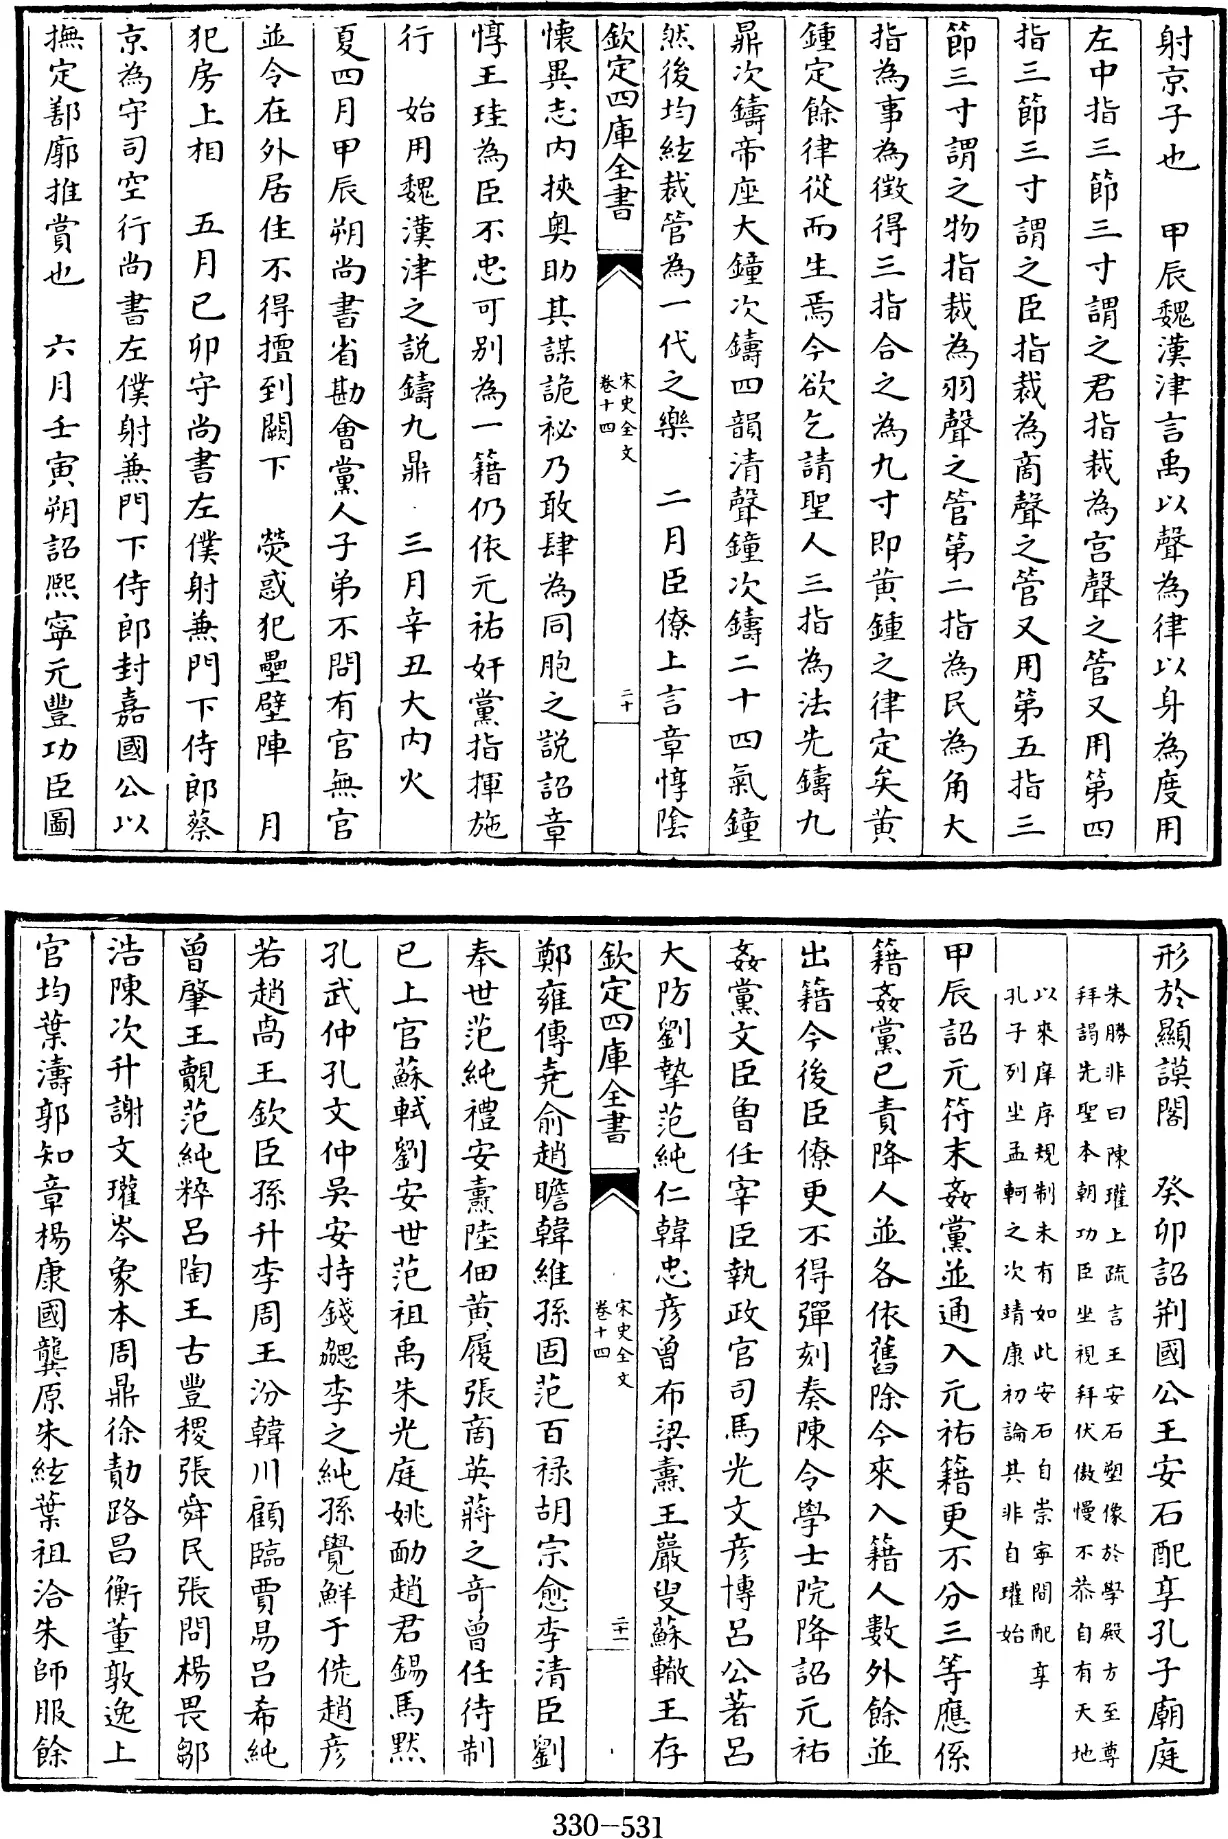 射京子也　甲辰魏漢津言禹以聲為律以身為度用
左中指三節三寸謂之君指裁為宫聲之管又用第四
指三節三寸謂之臣指裁為商聲之管又用第五指三
節三寸謂之物指裁為羽聲之管第二指為民為角大
指為事為徴得三指合之為九寸即黄鍾之律定矣黄
鍾定餘律從而生焉今欲乞請聖人三指為法先鑄九
鼎次鑄帝座大鐘次鑄四韻清聲鐘次鑄二十四氣鐘
然後均絃裁管為一代之樂　二月臣僚上言章惇陰
欽定四庫全書
宋史全文
卷十四
二十
懐異志内挾奥助其謀詭祕乃敢肆為同胞之説詔章
惇王珪為臣不忠可别為一籍仍依元祐奸黨指揮施
行　始用魏漢津之説鑄九鼎　三月辛丑大内火
夏四月甲辰朔尚書省勘會黨人子弟不問有官無官
並令在外居住不得擅到闕下　熒惑犯壘壁陣　月
犯房上相　五月已卯守尚書左僕射兼門下侍郎蔡
京為守司空行尚書左僕射兼門下侍郎封嘉國公以
撫定鄯廓推賞也　六月壬寅朔詔熙寧元豐功臣圖
形於顯謨閣　癸卯詔荆國公王安石配享孔子廟庭
朱勝非曰陳瓘上疏言王安石塑像於學殿方至尊
拜謁先聖本朝功臣坐視拜伏傲慢不恭自有天地
以來庠序規制未有如此安石自崇寧間配享
孔子列坐孟軻之次靖康初論其非自瓘始
甲辰詔元符末姦黨並通入元祐籍更不分三等應係
籍姦黨已責降人並各依舊除今來入籍人數外餘並
出籍今後臣僚更不得彈刻奏陳令學士院降詔元祐
姦黨文臣曾任宰臣執政官司馬光文彦博吕公著吕
大防劉摯范純仁韓忠彦曾布梁燾王巖叟蘇轍王存
欽定四庫全書
宋史全文
卷十四
二十一
鄭雍傅堯俞趙瞻韓維孫固范百禄胡宗愈李清臣劉
奉世范純禮安燾陸佃黄履張商英蔣之奇曾任待制
已上官蘇軾劉安世范祖禹朱光庭姚勔趙君錫馬黙
孔武仲孔文仲吳安持錢勰李之純孫覺鮮于侁趙彦
若趙卨王欽臣孫升李周王汾韓川顧臨賈易吕希純
曾肇王覿范純粹吕陶王古豐稷張舜民張問楊畏鄒
浩陳次升謝文瓘岑象本周鼎徐勣路昌衡董敦逸上
官均葉濤郭知章楊康國龔原朱絃葉祖洽朱師服餘
330-531